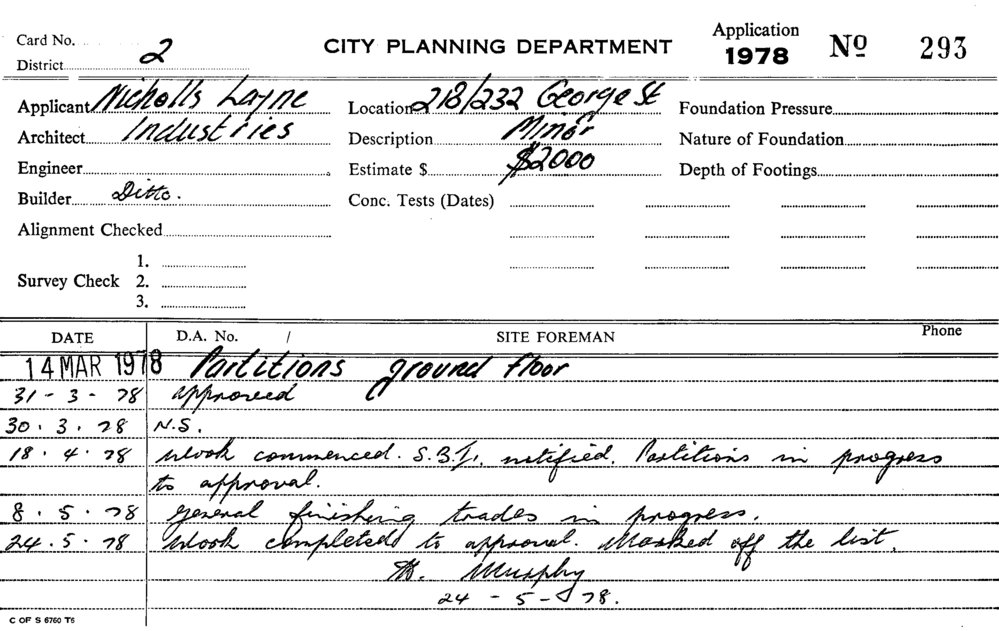 Card No.
District 2
CITY PLANNING DEPARTMENT
Application
1978 Nº 293
Applicant Nicholls Layne
Location 218/232 George St
Foundation Pressure
Architect Industries
Description Minor
Nature of Foundation
Engineer
Estimate $ $2000
Depth of Footings
Builder Ditto.
Conc. Tests (Dates)
Alignment Checked
Survey Check 1.
2.
3.
DATE D.A. No. / SITE FOREMAN Phone
14 MAR 1978 Partitions ground floor
31-3-78 approved
30.3.78 N.S.
18.4.78 Work commenced. notified. Partitions in progress
to approval.
8.5.78 General finishing trades in progress.
24.5.78 Work completed to approval. Marked off the list.
Murphy
24-5-78.
C OF S 6760 T6